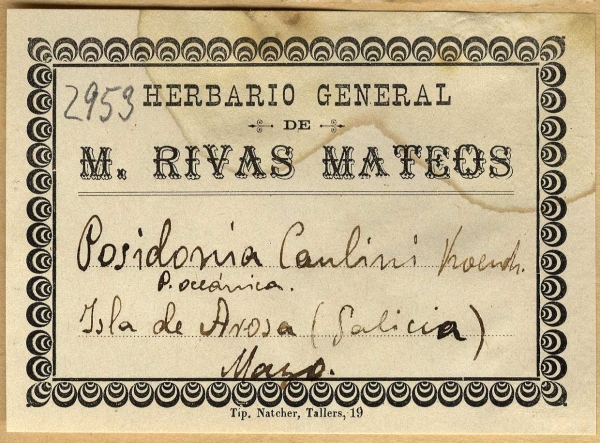 2953 HERBARIO GENERAL
DE
M. RIVAS MATEOS
Posidonia Caulini Koench.
P. oceánica.
Isla de Arosa (Galicia)
Mayo.
Tip. Natcher, Tallers, 19